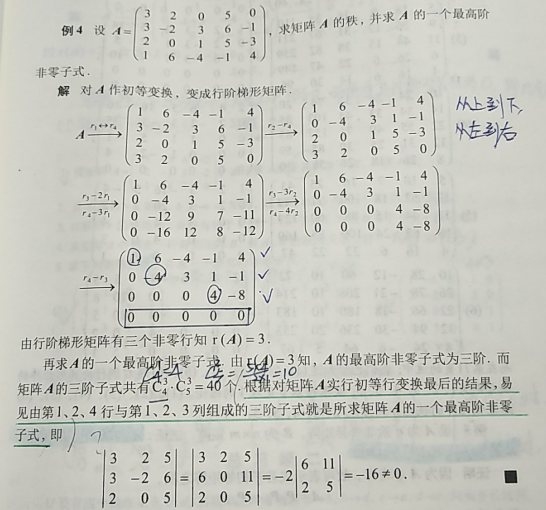 例4 设 A= ( 3 2 0 5 0
3 -2 3 6 -1
2 0 1 5 -3
1 6 -4 -1 4 ) , 求矩阵 A 的秩，并求 A 的一个最高阶
非零子式.
解 对 A 作初等变换，变成行阶梯形矩阵.
A r₁↔r₄→ ( 1 6 -4 -1 4
3 -2 3 6 -1
2 0 1 5 -3
3 2 0 5 0 )
r₂-r₄→ ( 1 6 -4 -1 4
0 -4 3 1 -1
2 0 1 5 -3
3 2 0 5 0 )
从上到下,
从左到右
r₃-2r₁
r₄-3r₁ → ( 1 6 -4 -1 4
0 -4 3 1 -1
0 -12 9 7 -11
0 -16 12 8 -12 )
r₃-3r₂
r₄-4r₂ → ( 1 6 -4 -1 4
0 -4 3 1 -1
0 0 0 4 -8
0 0 0 4 -8 )
r₄-r₃→ ( 1 6 -4 -1 4 ✓
0 -4 3 1 -1 ✓
0 0 0 4 -8 ✓
0 0 0 0 0 )
由行阶梯形矩阵有三个非零行知 r(A) = 3.
再求 A 的一个最高阶非零子式. 由 r(A) = 3 知，A 的最高阶非零子式为三阶. 而
=10
矩阵 A 的三阶子式共有 C₄³·C₅³ = 40 个. 根据对矩阵 A 实行初等行变换最后的结果，易
见由第1、2、4 行与第1、2、3 列组成的三阶子式就是所求矩阵 A 的一个最高阶非零
子式，即
| 3 2 5
3 -2 6
2 0 5 | = | 3 2 5
6 0 11
2 0 5 | = -2 | 6 11
2 5 | = -16 ≠ 0. ■